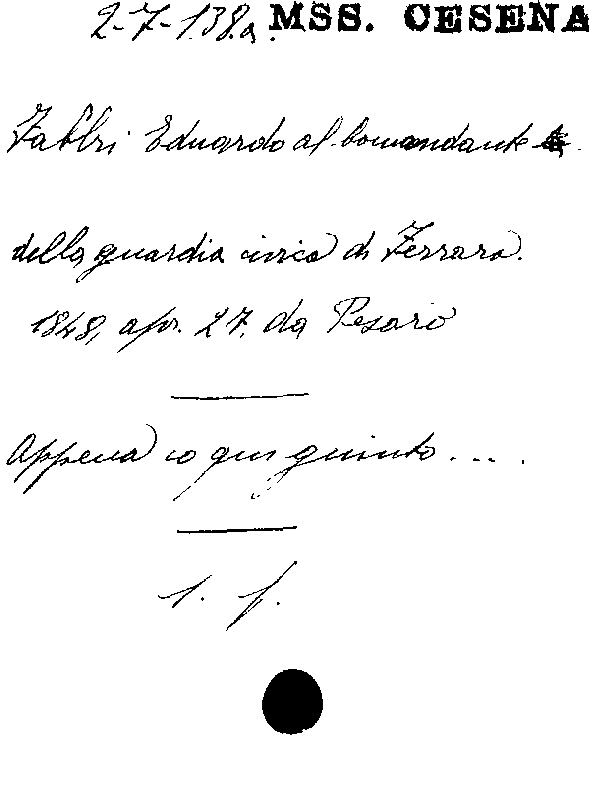 2-7-138a. MSS. CESENA
Fabbri Eduardo al Comandante
della guardia civica di Ferrara.
1848, apr. 27. da Pesaro
Appena io qui giunto....
1. f.